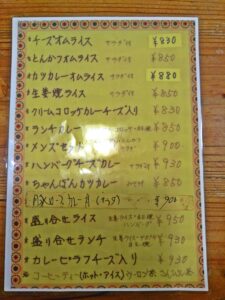 チーズオムライス サラダ付 ¥830
とんかつオムライス サラダ付 ¥850
カツカレーオムライス ¥880
生姜焼ライス サラダ付 ¥850
クリームコロッケカレーチーズ入り ¥830
ランチカレー ¥850
メンズセット ¥900
ハンバーグチーズカレー サラダ付 ¥930
ちゃんぽんカツカレー ¥850
(サラダ) ¥900
盛り合せライス 生姜ライス ハンバーグ ¥950
盛り合せランチ ¥930
カレーピラフチーズ入り ¥930
コーヒー・ティー(ホット・アイス) ウーロン茶